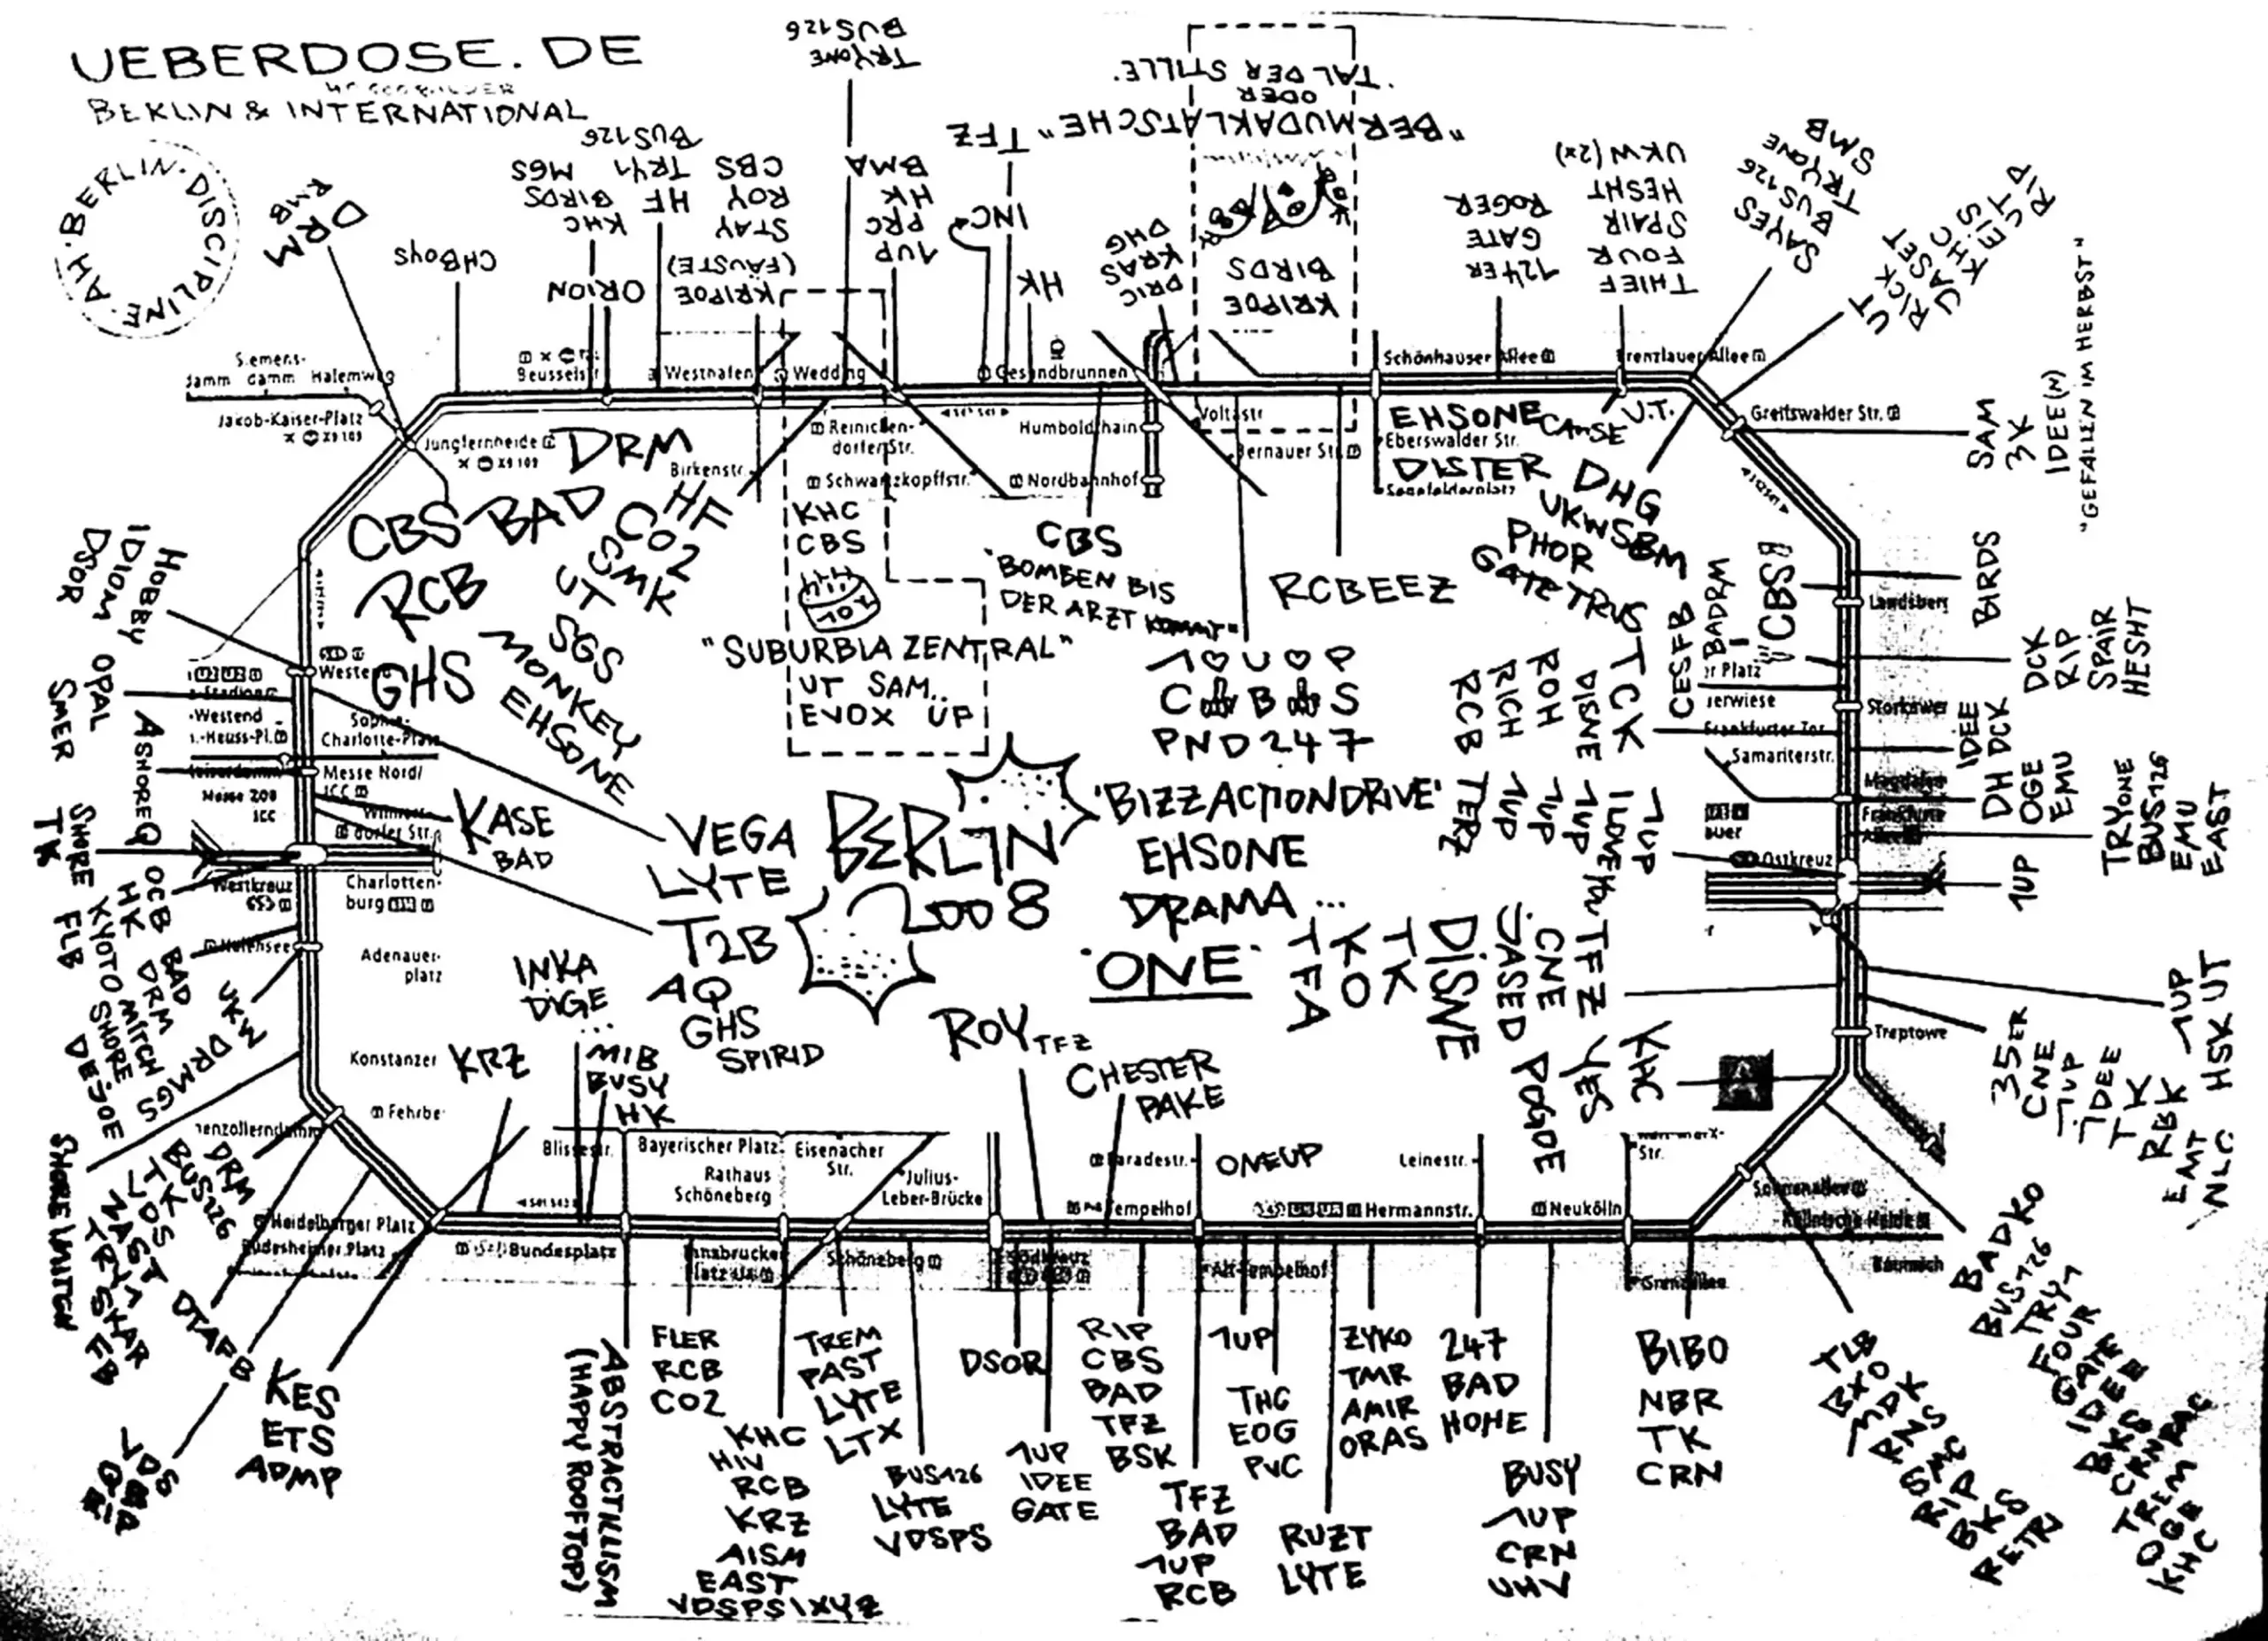 UEBERDOSE.DE
BERLIN & INTERNATIONAL
AH.BERLIN.DISCIPLINE
DRM
RMB
CHBoys
BUS126
TRY1
HF
MGS
BIRDS
KHC
ORION
CBS
ROY
STAY
(FÄUSTE)
KRIPOE
BUS126
TRYONE
BMA
HK
PRC
1UP
TFZ
INC
HK
DHG
KRAS
DRIC
"BERMUDAKLATSCHE"
ODER
"TAL DER STILLE"
BIRDS
KRIPOE
ROGER
GATE
124ER
UKW (2x)
HESHT
SPAIR
FOUR
THIEF
SMB
TRYONE
BUS126
SAYES
RIP
KECT
SIS
KHC
UASET
RICK
UT
SAM
3K
IDEE(N)
"GEFALLEN IM HERBST"
Siemens-
damm
Halemweg
Jakob-Kaiser-Platz
X9 109
Jungfernheide
X9 109
Beusselstr
Westhafen
Wedding
Gesundbrunnen
Schönhauser Allee
Prenzlauer Allee
Greifswalder Str.
Birkenstr.
Reinicken-
dorfer Str.
Schwartzkopffstr.
Humboldthain
Nordbahnhof
Voltastr
Bernauer Str
Eberswalder Str.
Senefelderplatz
DRM
CBS BAD
RCB
GHS
HF
CO2
SMK
UT
SGS
MONKEY
EHSONE
KHC
CBS
10x
"SUBURBIA ZENTRAL"
UT SAM..
EVOX ÜP
CBS
"BOMBEN BIS
DER ARZT KOMMT"
RCBEEZ
EHSONE
CAUSE
U.T.
DISTER
DHG
UKWSBM
PHOR
GATE TRUS
1 U P
C B S
PND 247
'BIZZACTIONDRIVE'
EHSONE
DRAMA...
'ONE'
BERLIN
2008
VEGA
LYTE
T2B
AQ
GHS
SPIRID
KASE
BAD
INKA
DIGE
...
KRZ
MIB
BUSY
HK
ROY TFZ
CHESTER
PAKE
ONEUP
CESFB
BADRM
CBS
TCK
DISNE
ROH
RICH
RCB
TERZ
1UP
1UP
1UP
1UP
TFZ
CNE
JASED
DISNE
TK
KO
TFA
KHC
YES
POGDE
BIRDS
DCK
RIP
SPAIR
HESHT
IDEE
DH DCK
OGE
EMU
TRYONE
BUS126
EMU
EAST
1UP
1UP
HSK UT
35ER
CNE
1UP
IDEE
TK
RBK
EMT
NLC
Landsberg
Storkower
Frankfurter Tor
Samariterstr.
Ostkreuz
Treptowe
HOBBY
IDIOM
DSOR
OPAL
SMER
ASHORE
TK
SHORE
FLB
HK
OCB
BAD
DRM
MITCH
KYOTO SHORE
DEJOE
UKW
DRMGS
Westend
Sophie-
Charlotte-Platz
-Westend
Messe Nord/
ICC
Wilmers-
dorfer Str.
Westkreuz
Charlotten-
burg
Halensee
Adenauer-
platz
Konstanzer
Fehrbe
Heidelberger Platz
Rüdesheimer Platz
Blissestr.
Bayerischer Platz
Eisenacher
Str.
Rathaus
Schöneberg
Julius-
Leber-Brücke
Paradestr.
Tempelhof
Leinestr.
Hermannstr.
Neukölln
Sonnenallee
Köllnische Heide
Bundesplatz
Innsbrucker
Platz
Schöneberg
Südkreuz
Alt-Tempelhof
Grenzallee
DRM
BUS126
TK
LDS
NAST
TRY1
SHAR
FB
DTAFB
RIP
KES
ETS
ADMP
ABSTRACTILLISM
(HAPPY ROOFTOP)
FLER
RCB
CO2
KHC
HIV
RCB
KRZ
AISM
EAST
VDSPS1XYZ
TREM
PAST
LYTE
LTX
BUS126
LYTE
VDSPS
DSOR
1UP
IDEE
GATE
RIP
CBS
BAD
TFZ
BSK
TFZ
BAD
1UP
RCB
1UP
THG
EOG
PVC
RUZT
LYTE
ZYKO
TMR
AMIR
ORAS
247
BAD
HOHE
BUSY
1UP
CRN
UHV
BIBO
NBR
TK
CRN
TLB
BXO
MDK
RNS
SMC
RIP
BKS
RETRI
BADKO
BUS126
TRY1
FOUR
GATE
IDEE
BKS
CRN
TREM
OGE
KHC